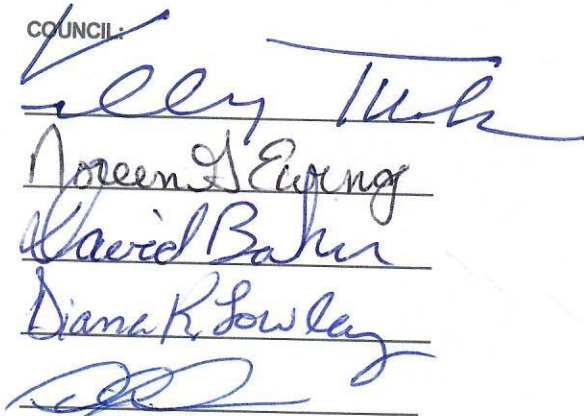 COUNCIL:
Kelly
Noreen G Ewing
David Baker
Diana R Lowley